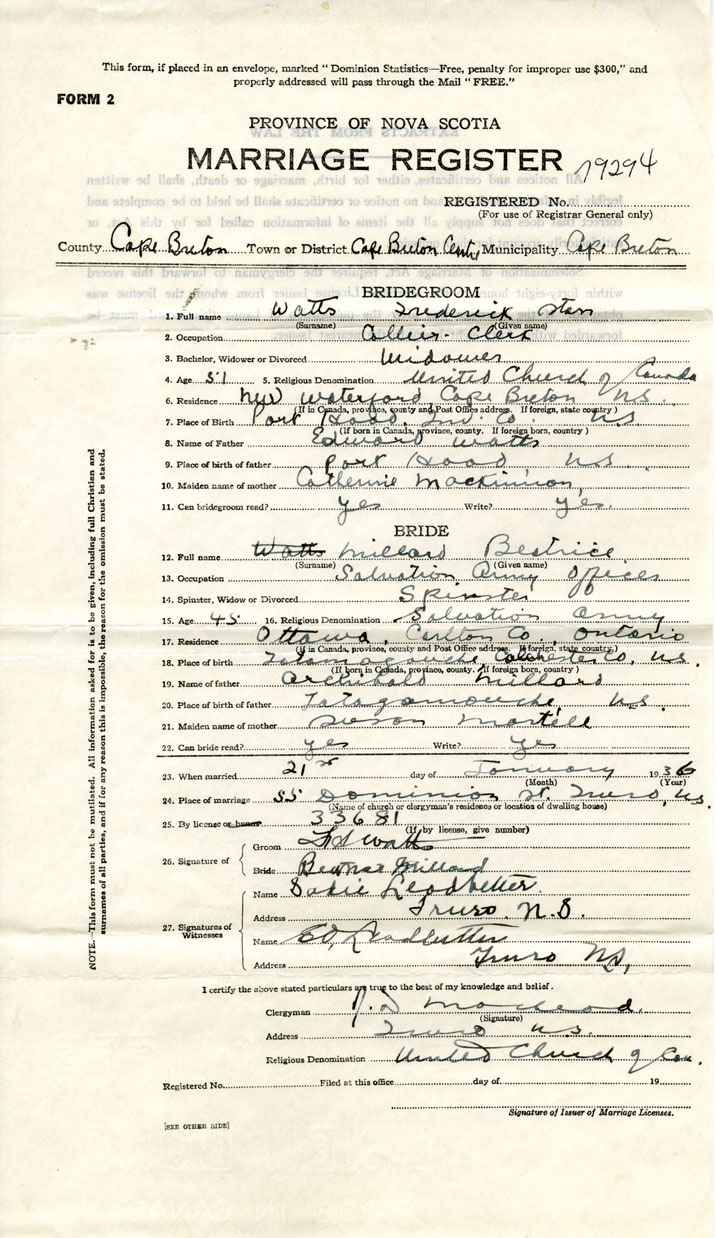 This form, if placed in an envelope, marked “ Dominion Statistics—Free, penalty for improper use $300,” and
properly addressed will pass through the Mail “ FREE.”
FORM 2
PROVINCE OF NOVA SCOTIA
MARRIAGE REGISTER 19294
REGISTERED No.
(For use of Registrar General only)
County Cape Breton Town or District Cape Breton Municipality Cape Breton
BRIDEGROOM
1. Full name Watts Frederick
(Surname) (Given name)
2. Occupation Clerk
3. Bachelor, Widower or Divorced Widower
4. Age 51 5. Religious Denomination United Church of Canada
6. Residence New Waterford, Cape Breton N.S.
(If in Canada, province, county and Post Office address. If foreign, state country)
7. Place of Birth Port Hood, Inv. Co. N.S.
(If born in Canada, province, county. If foreign born, country)
8. Name of Father Edward Watts
9. Place of birth of father Port Hood, N.S.
10. Maiden name of mother Catherine MacKinnon
11. Can bridegroom read? yes Write? yes.
BRIDE
12. Full name Watts Millard Beatrice
(Surname) (Given name)
13. Occupation Salvation Army Officer
14. Spinster, Widow or Divorced Spinster
15. Age 45 16. Religious Denomination Salvation Army
17. Residence Ottawa, Carlton Co., Ontario
(If in Canada, province, county and Post Office address. If foreign, state country.)
18. Place of birth Tatamagouche, Colchester Co., N.S.
(If born in Canada, province, county. If foreign born, country)
19. Name of father Archibald Millard
20. Place of birth of father Tatagamouche, N.S.
21. Maiden name of mother Susan Martell
22. Can bride read? yes Write? yes
23. When married 21st day of January 1936
(Month) (Year)
24. Place of marriage 55 Dominion St. Truro, N.S.
(Name of church or clergyman's residence or location of dwelling house)
25. By license or banns 33681
(If by license, give number)
26. Signature of Groom F S Watts
Bride Beatrice Millard
27. Signatures of Witnesses Name Sadie Leadbetter
Address Truro, N.S.
Name Leadbetter
Address Truro N.S.
I certify the above stated particulars are true to the best of my knowledge and belief.
Clergyman MacLeod
(Signature)
Address Truro N.S.
Religious Denomination United Church of Can.
Registered No. Filed at this office day of 19
Signature of Issuer of Marriage Licenses.
[SEE OTHER SIDE]
NOTE.—This form must not be mutilated. All information asked for is to be given, including full Christian and
surnames of all parties, and if for any reason this is impossible, the reason for the omission must be stated.